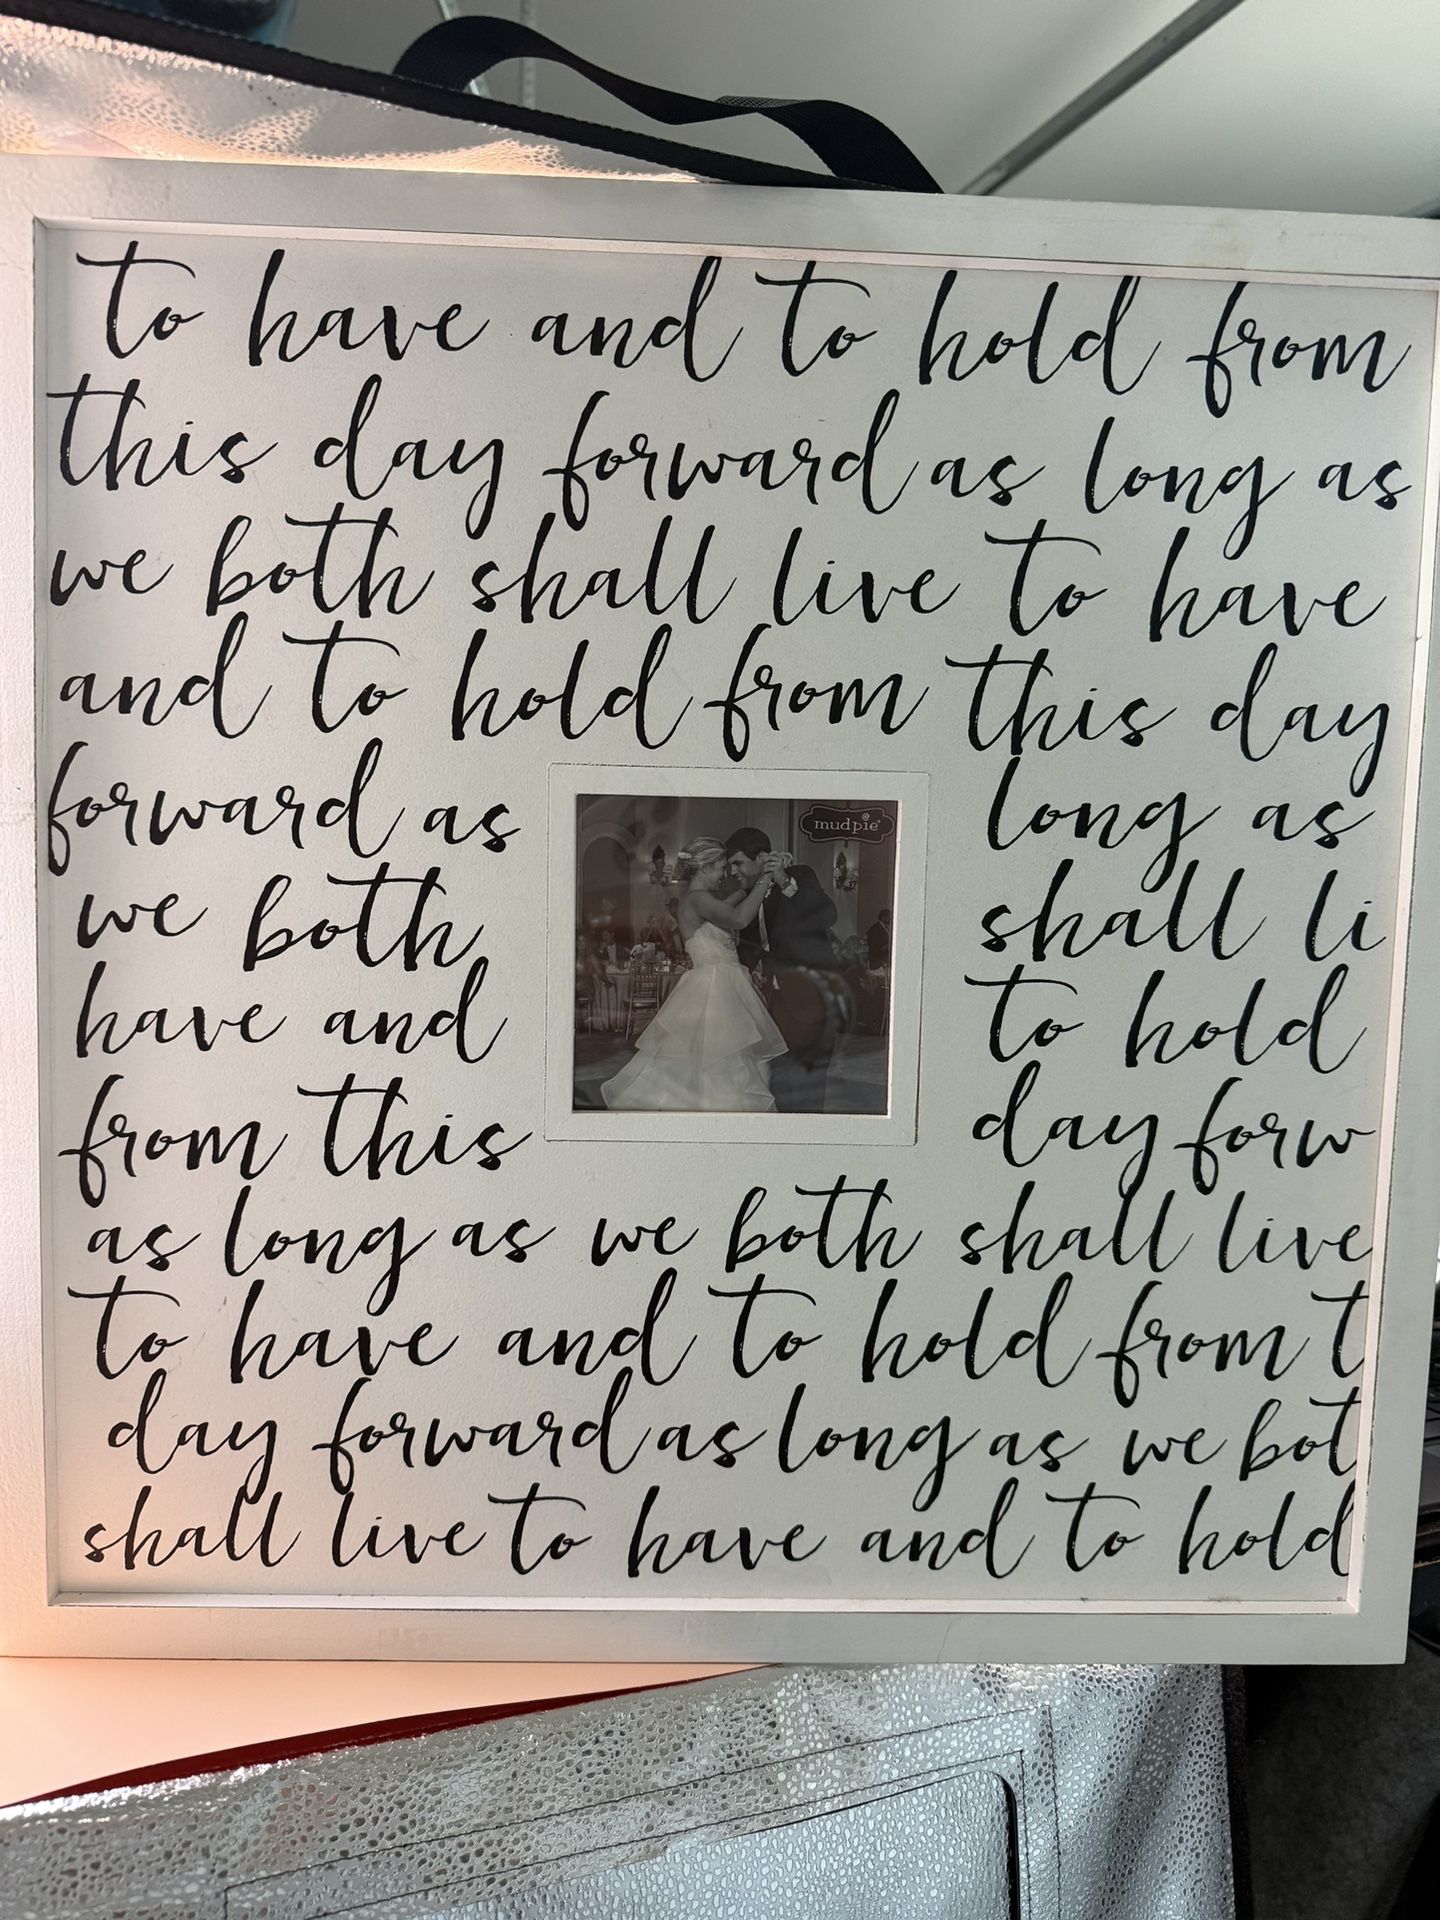 to have and to hold from
this day forward as long as
we both shall live to have
and to hold from this day
forward as long as
mudpie
we both shall li
have and to hold
from this day forw
as long as we both shall live
to have and to hold from t
day forward as long as we bot
shall live to have and to hold